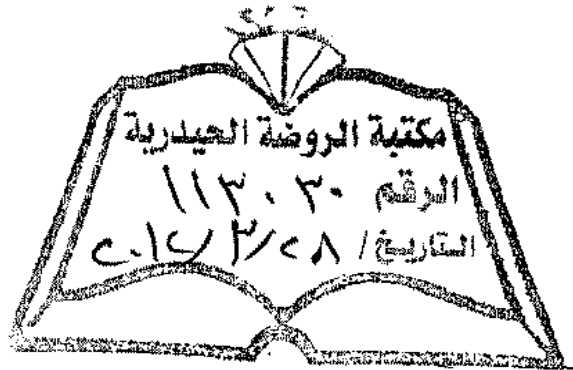 مكتبة الروضة الحيدرية
الرقم ١١٣٠٣٠
التاريخ / ٢٨/٣/٢٠١٢